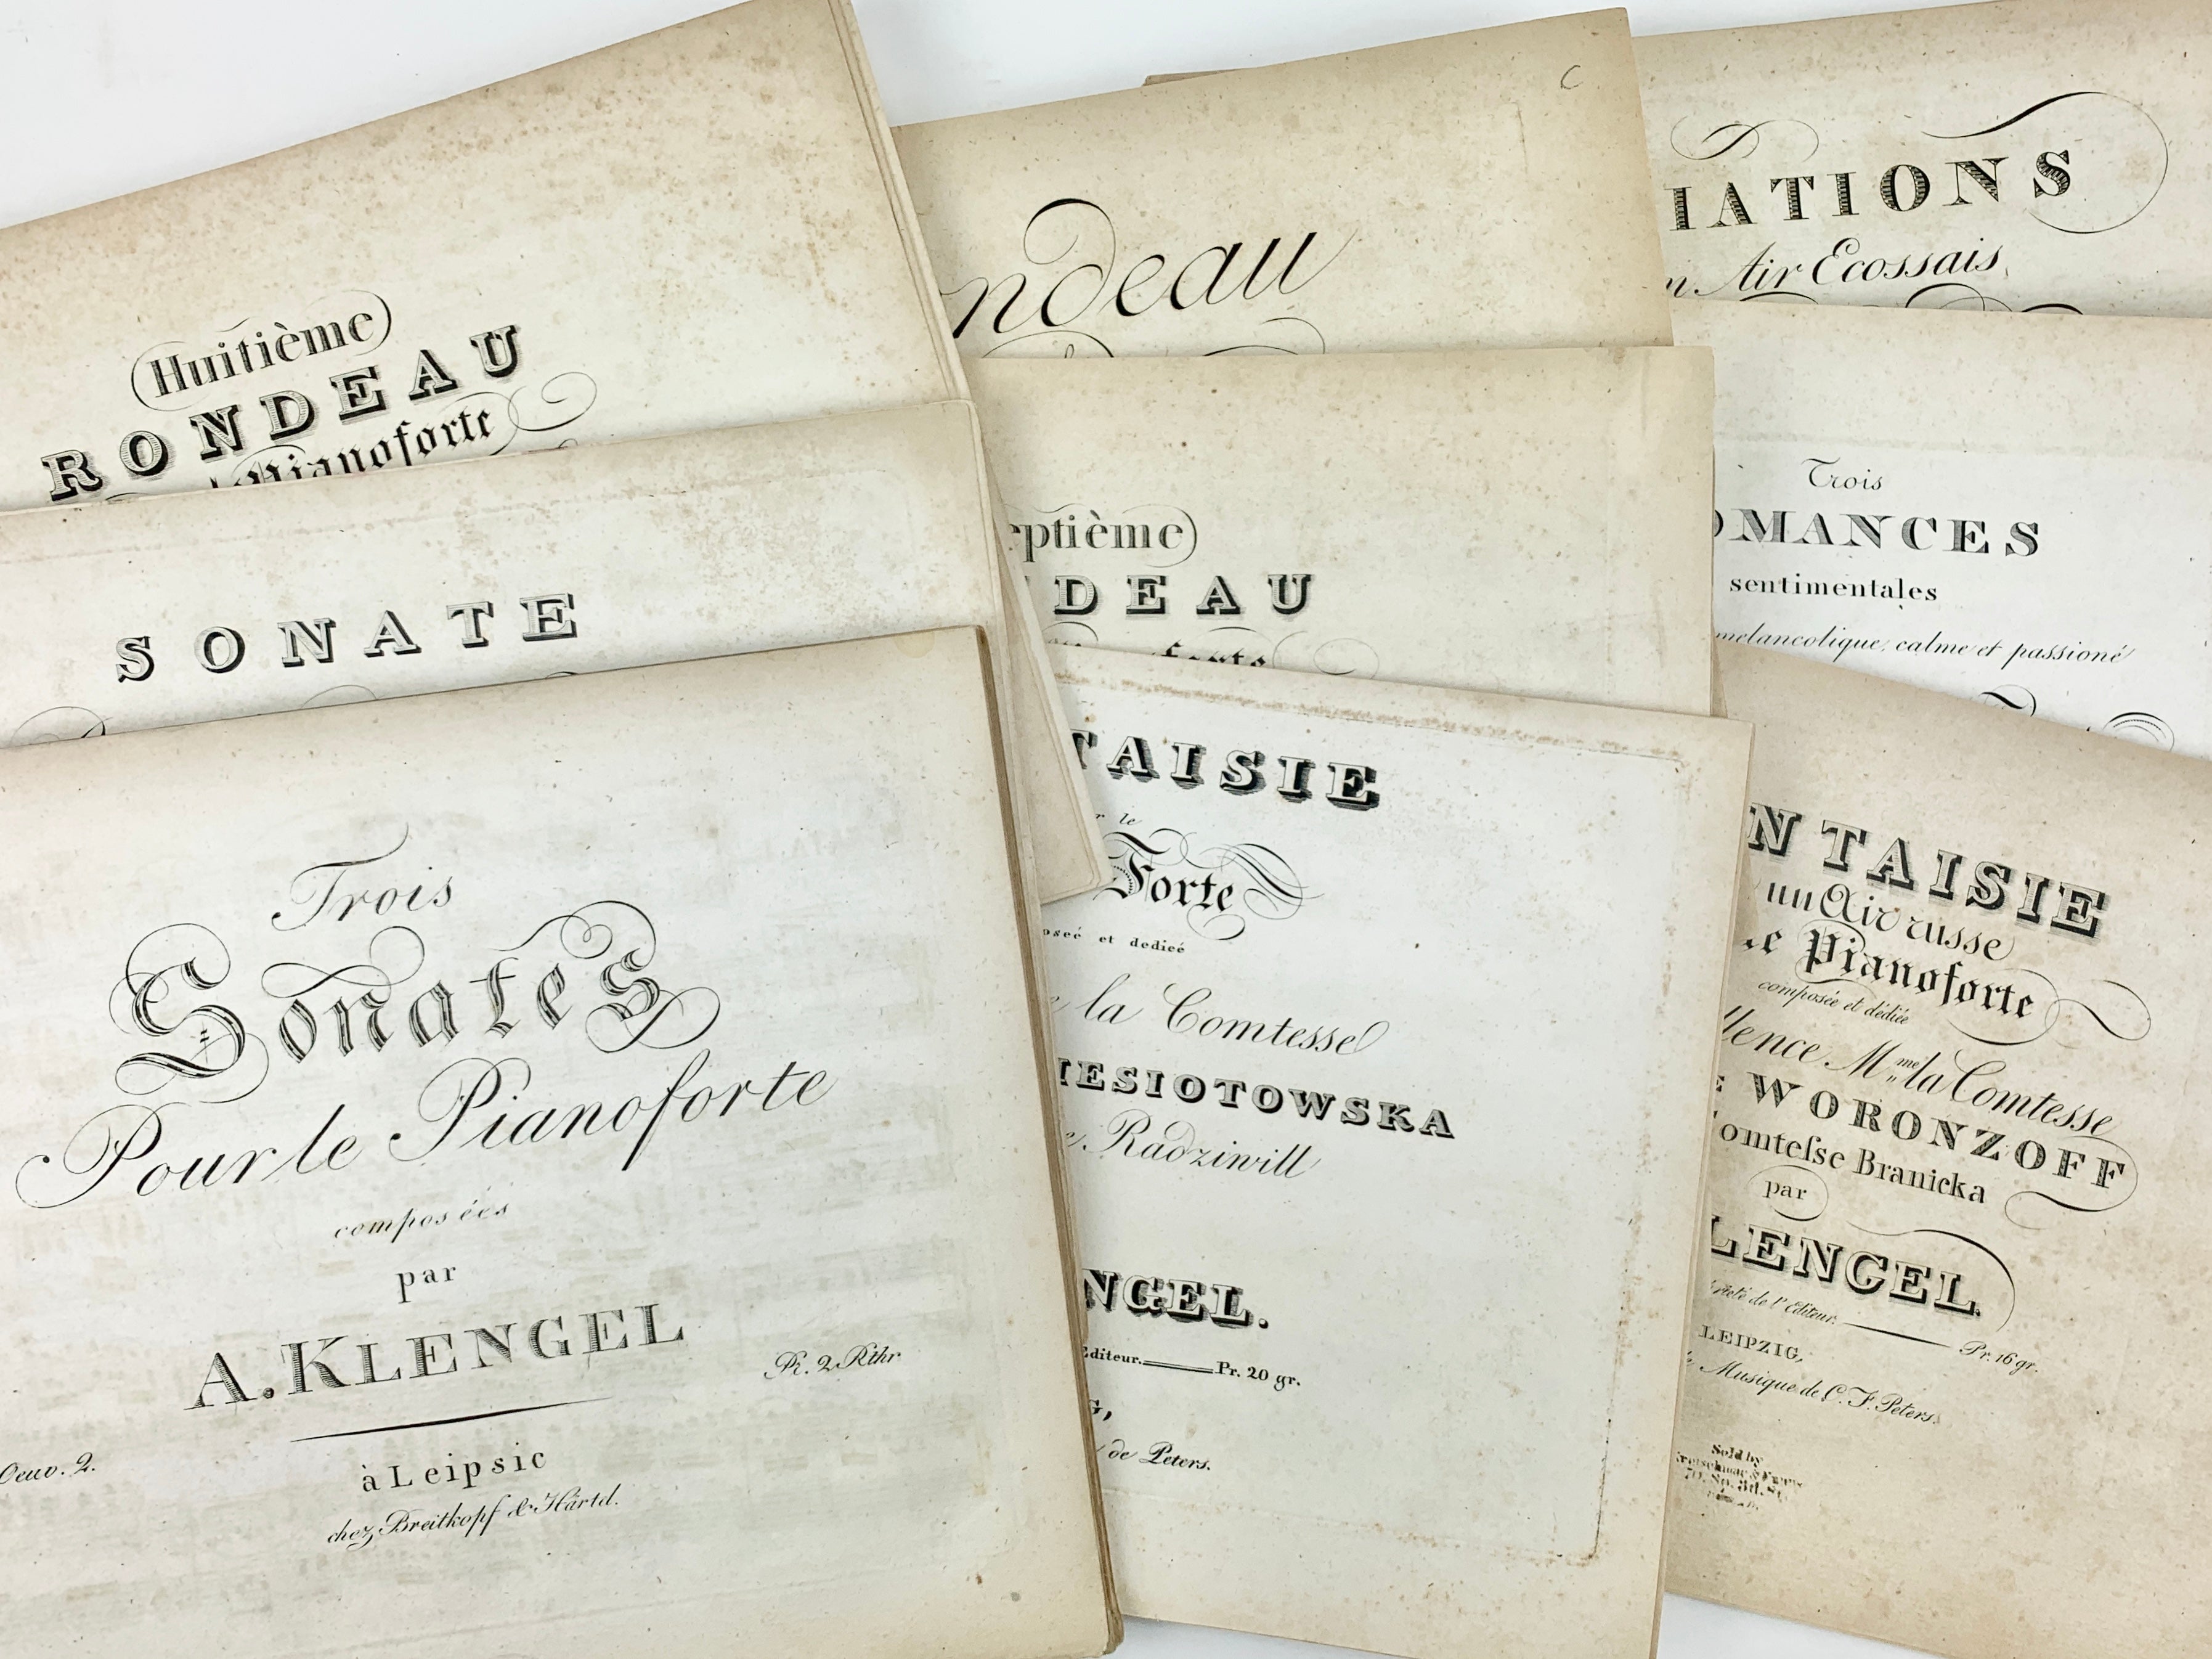 Huitième
RONDEAU
Pianoforte
SONATE
Trois
Sonates
Pour le Pianoforte
composées
par
A. KLENGEL
Pr. 2 Rthr.
Oeuv. 2.
à Leipsic
chez Breitkopf & Härtel.
C
ndeau
eptième
DEAU
TAISIE
r le
Forte
oseé et dedieé
la Comtesse
IESIOTOWSKA
Radziwill
NGEL.
Editeur. Pr. 20 gr.
G,
de Peters.
IATIONS
n Air Ecossais
Trois
OMANCES
sentimentales
melancolique, calme et passioné
NTAISIE
un Air russe
le Pianoforte
composée et dédiée
llence Mme la Comtesse
E WORONZOFF
omtesse Branicka
par
LENGEL.
rieté de l'Editeur. Pr. 16 gr.
LEIPZIG,
Musique de C. F. Peters.
Sold by